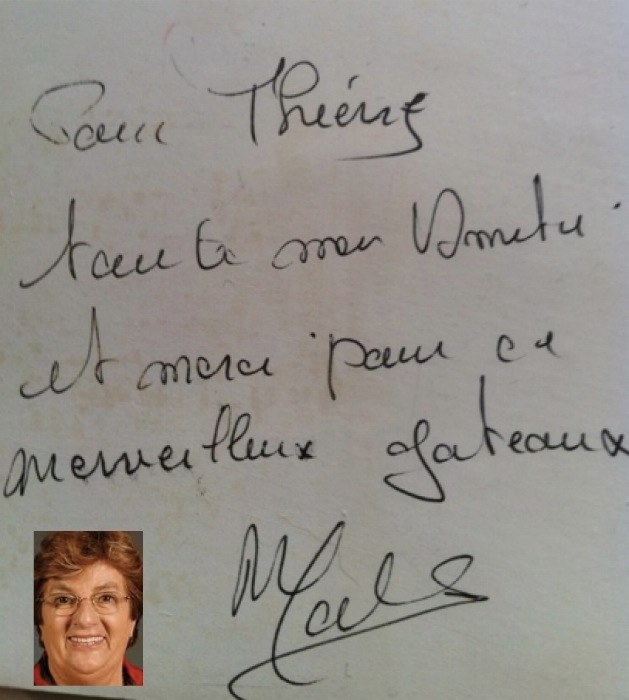 Pour Thierry
toute mon Amitié
et merci pour ce
merveilleux gateaux